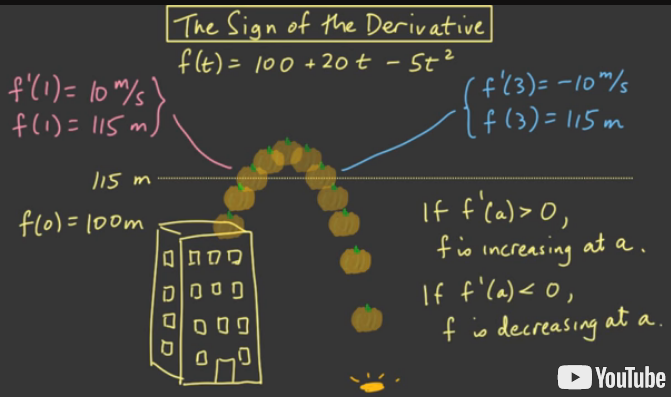 The Sign of the Derivative
f(t) = 100 + 20t - 5t²
f'(1) = 10 m/s
f(1) = 115 m
f'(3) = -10 m/s
f(3) = 115 m
115 m
f(0) = 100m
If f'(a) > 0,
f is increasing at a.
If f'(a) < 0,
f is decreasing at a.
YouTube